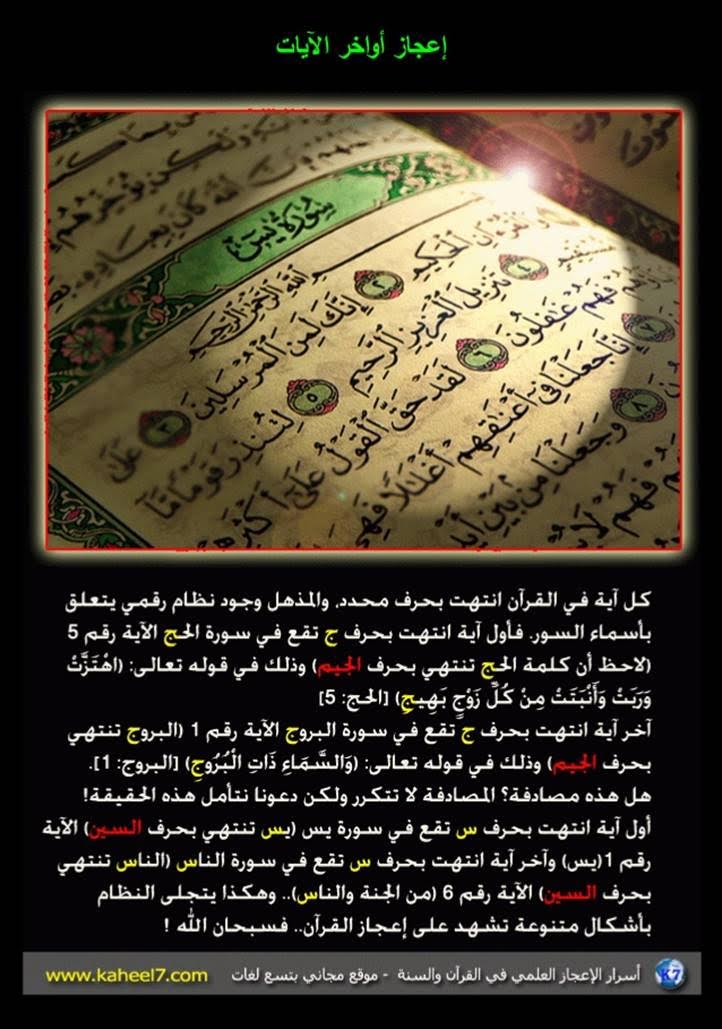 إعجاز أواخر الآيات
سورة يس
الله الرحمن الرحيم
والقرءان الحكيم ٢ إنك لمن المرسلين ٣ على
مستقيم ٤ تنزيل العزيز الرحيم ٥ لتنذر قوما ما
فهم غفلون ٦ لقد حق القول على أكثرهم
٧ إنا جعلنا في أعنقهم أغللا فهي
٨ وجعلنا من بين
فهم لا
كل آية في القرآن انتهت بحرف محدد، والمذهل وجود نظام رقمي يتعلق
بأسماء السور. فأول آية انتهت بحرف ج تقع في سورة الحج الآية رقم 5
(لاحظ أن كلمة الحج تنتهي بحرف الجيم) وذلك في قوله تعالى: (اهْتَزَّتْ
وَرَبَتْ وَأَنْبَتَتْ مِنْ كُلِّ زَوْجٍ بَهِيجٍ) [الحج: 5]
آخر آية انتهت بحرف ج تقع في سورة البروج الآية رقم 1 (البروج تنتهي
بحرف الجيم) وذلك في قوله تعالى: (وَالسَّمَاءِ ذَاتِ الْبُرُوجِ) [البروج: 1].
هل هذه مصادفة؟ المصادفة لا تتكرر ولكن دعونا نتأمل هذه الحقيقة!
أول آية انتهت بحرف س تقع في سورة يس (يس تنتهي بحرف السين) الآية
رقم 1(يس) وآخر آية انتهت بحرف س تقع في سورة الناس (الناس تنتهي
بحرف السين) الآية رقم 6 (من الجنة والناس).. وهكذا يتجلى النظام
بأشكال متنوعة تشهد على إعجاز القرآن.. فسبحان الله !
أسرار الإعجاز العلمي في القرآن والسنة - موقع مجاني بتسع لغات www.kaheel7.com
K7